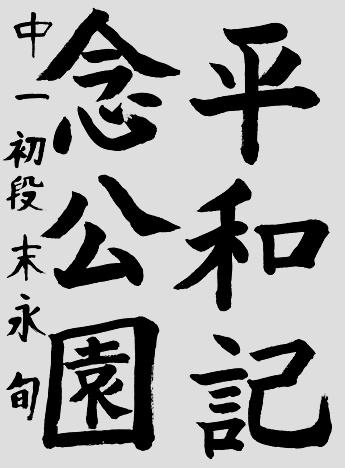 平和記
念公園
中一 初段 末永 旬